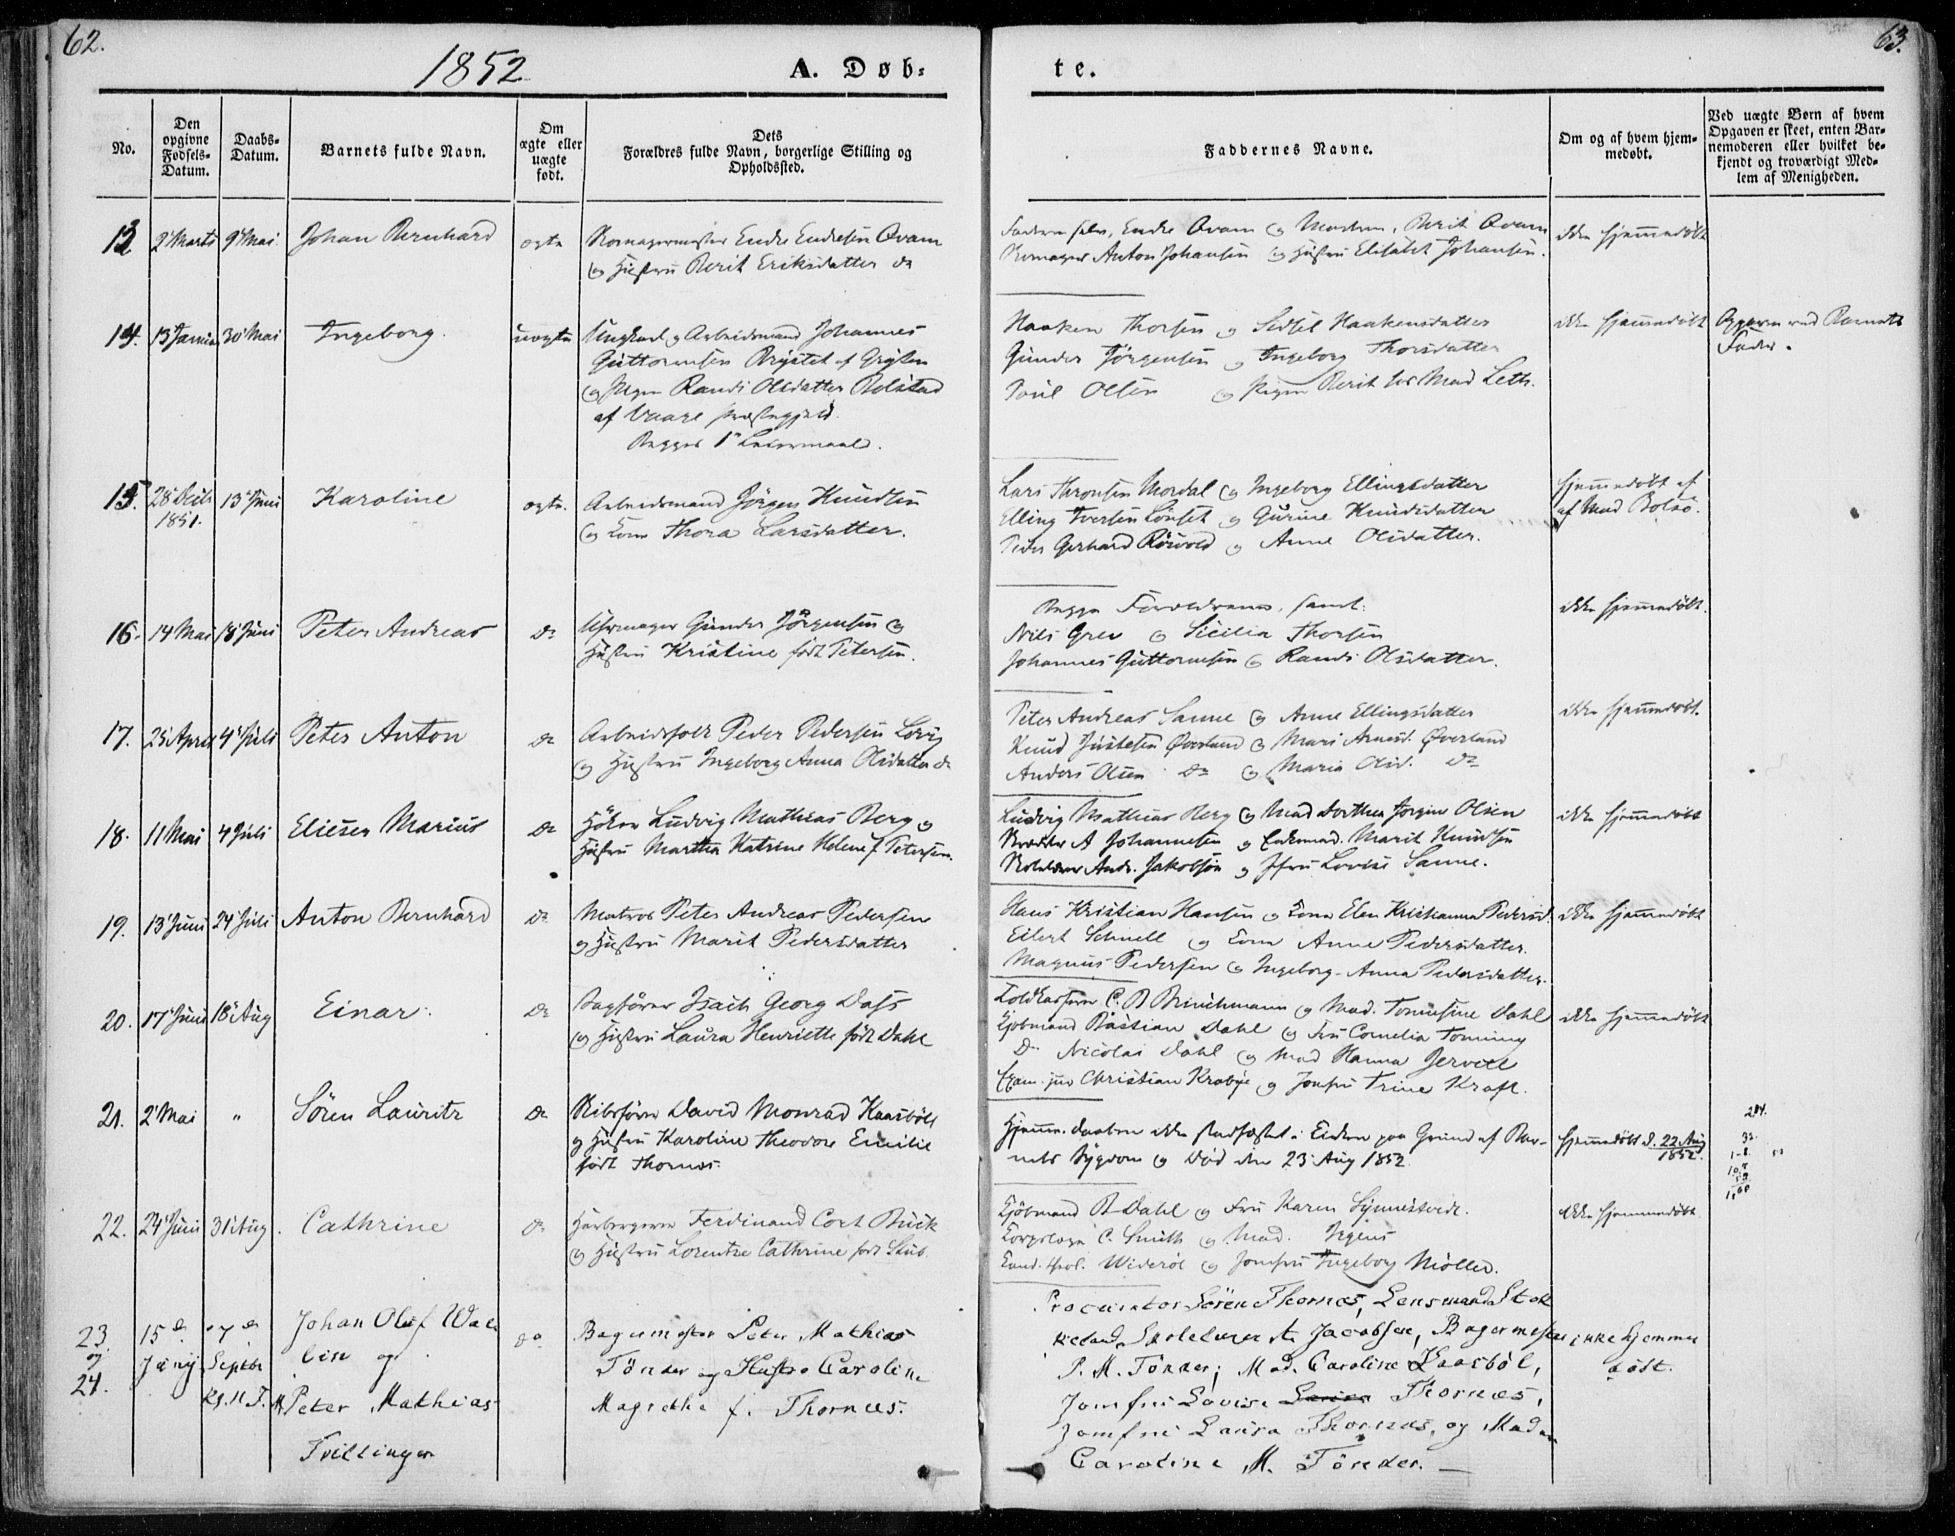 62.
1852
A. Døb-
te.
63.
No.
Den opgivne Fødsels-Datum.
Daabs-Datum.
Barnets fulde Navn.
Om ægte eller uægte født.
Dets Forældres fulde Navn, borgerlige Stilling og Opholdssted.
Faddernes Navne.
Om og af hvem hjem-medøbt.
Ved uægte Børn af hvem Opgaven er skeet, enten Bar-nemoderen eller hvilket be-kjendt og troværdigt Med-lem af Menigheden.
13 2' Marts 9' Mai Johan Bernhard ægte Endre Endresen Qvam
og Hustru Berit Eriksdatter do
Faderen selv, Endre Qvam og Moderen, Berit Qvam
Anton Johansen og Hustru Elisabet Johansen.
ikke hjemmedøbt
14. 13' 30' Mai Ingeborg. uægte Ungkarl og Arbeidsmand Johannes
Guttormsen af
og Pigen Randi Olsdatter Bolstad
af Vaage Præstegjeld.
Begges 1' Leiermaal.
Haaken Thorsen og Sidsel Haakensdatter
Gunder Jörgensen og Ingeborg Thorsdatter
Poul Olsen og Pigen Berit hos Mad Leth.
ikke hjemmedøbt
Opgaven ved Barnets
Fader.
15. 28' Decbr 1851. 13' Juni Karoline ægte. Arbeidsmand Jörgen Knudsen
og Kone Thora Larsdatter.
Lars Thronsen Mordal og Ingeborg Ellingsdatter
Elling Iversen Lönset og Gurine Knudsdatter
Peder Gerhard Rösvold og Anne Olsdatter.
Hjemmedøbt af
af Mad Bolsö.
16. 14 Mai 18' Juni Peter Andreas do Uhrmager Gunder Jörgensen og
Hustru Kristine födt Petersen.
Begge Forældrene, samt:
Nils Grev og Sicilia Thorsen
Johannes Guttormsen og Randi Olsdatter.
ikke hjemmedøbt.
17. 25 April 4' Juli Peter Anton do Arbeidsfolk Peder Pedersen
og Hustru Ingeborg Anna Olsdatter do
Peter Andreas Sanne og Anne Ellingsdatter
Knud Justesen Øverland og Mari Arnesd. Øverland
Anders Olsen do og Maria Olsd. do
ikke hjemmedøbt.
18. 11 Mai 4 Juli Elieser Marius do Höker Ludvig Mathias Berg og
Hustru Martha Katrine Helene f. Petersen.
Ludvig Mathias Berg og Mad Dorthea Jörgine Olsen
A Johannesen og Marit Knudsen
Andr. Jakobsön og Jfru Lovise Sanne.
ikke hjemmedøbt
19. 13' Juni 24' Juli Anton Bernhard do Matros Peter Andreas Pedersen
og Hustru Marit Pedersdatter
Hans Kristian Hansen og Kone Elen Kristianna Pedersd.
Eilert Schnell og Kone Anne Pedersdatter.
Magnus Pedersen og Ingeborg-Anna Pedersdatter.
ikke hjemmedøbt
20. 17' Juni 18' Aug Einar. do Sagförer Isach Georg Dass
og Hustru Laura Henriette födt Dahl
Toldkasserer C. B Brinchmann og Mad. Tomasine Dahl
Kjöbmand Bastian Dahl og Fru Cornelia Tonning
Do Nicolai Dahl og Mad Hanna Jervell
Exam. jur Christian Krabye og Jomfru Trine Kraft.
ikke hjemmedøbt
21. 2' Mai " Sören Lauritz do Skibsförer David Monrad Kaasböll
og Hustru Karoline Theodore Emilie
født Thornæs.
Hjemmedaaben ikke stadfæstet i Kirken paa Grund af Bar-
nets Sygdom og Död den 23 Aug 1852.
hjemmedöbt d. 22 Aug 1852.
22. 24' Juni 31' Aug. Cathrine do Ferdinand Cort Buck
og Hustru Lorentze Cathrine født Stub.
Kjöbmand B Dahl og Fru Karen
Korpslæge C. Smith og Mad.
Kand. theol. Wideröe og Jomfru Ingeborg Möller.
ikke hjemmedøbt
23. og 24. 15de Junij 7de Septbr Johan Olaf Wal-
lin og
Peter Mathias
Tvillinger
do
Bagermester Peter Mathias
Tönder og Hustro Caroline
Magrethe f. Thornæs.
Procurator Sören Thornæs, Lensmand
Skolelærer A. Jacobsen, Bagermester
P. M. Tönder; Mad. Caroline Kaasböl,
Jomfru Lovise Thornæs,
Jomfru Laura Thornæs, og Madam
Caroline M. Tönder.
ikke hjemme
döbt.